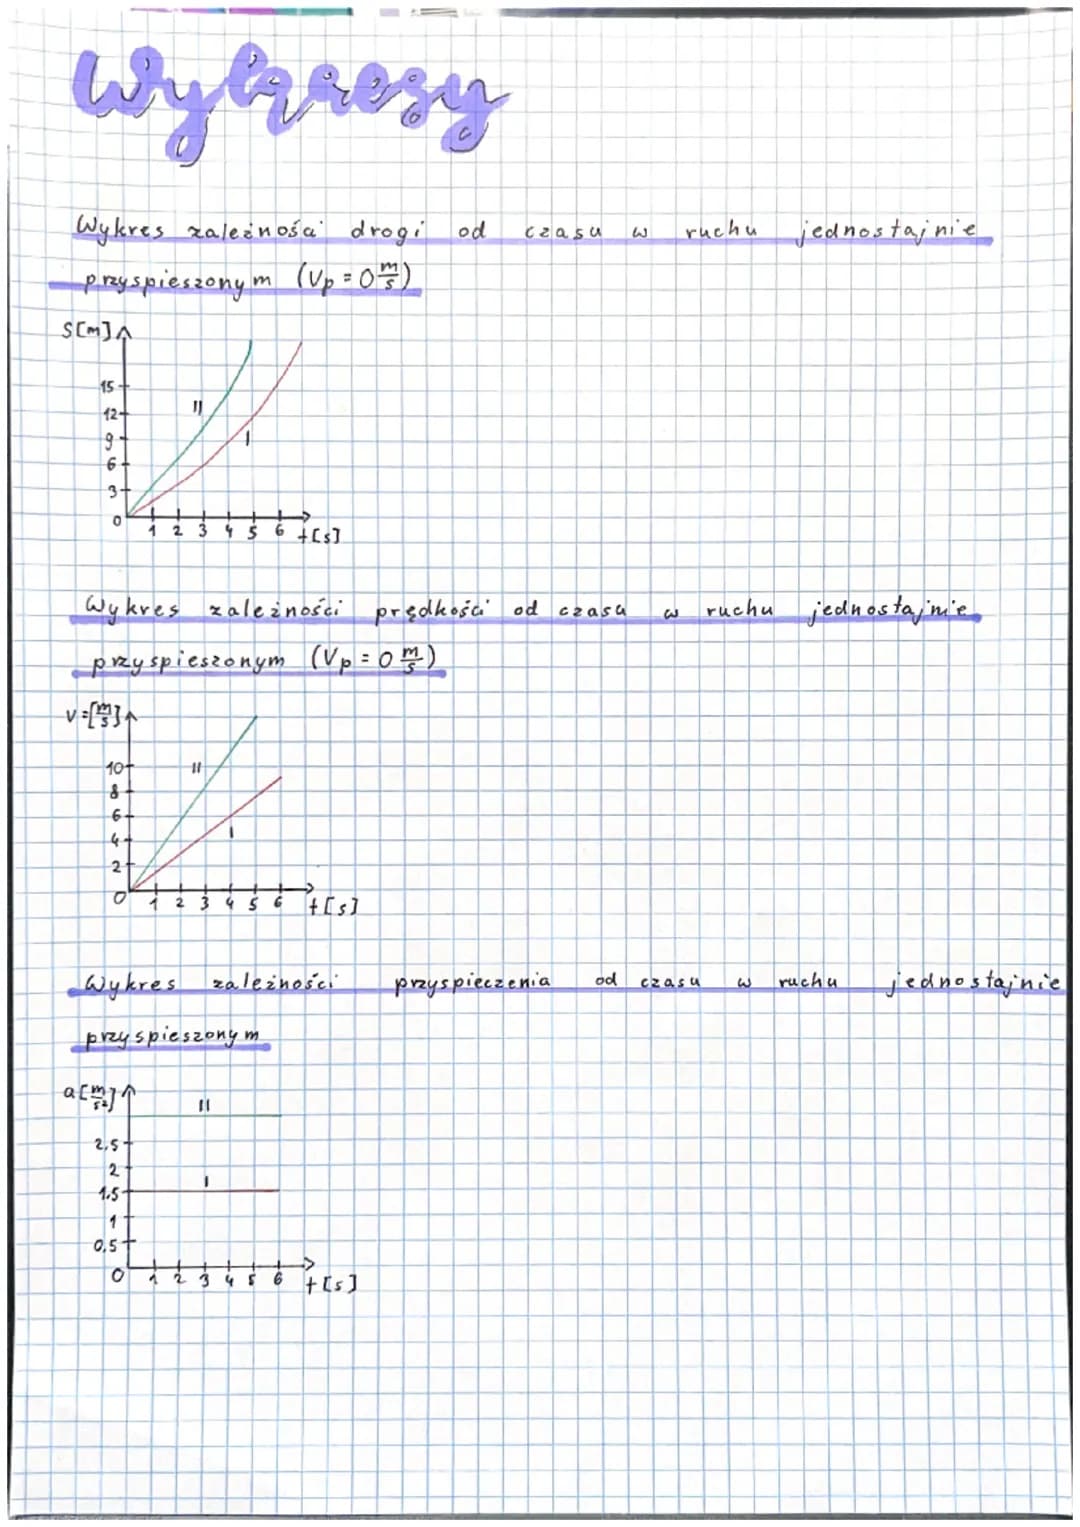 Wykresy
Wykres zależności drogi od czasu w ruchu jednostajnie
przyspieszonym (Vp = 0 m/s)
S[m]
15
12
9
6
3
0
II
I
1 2 3 4 5 6 t[s]
Wykres zależności prędkości od czasu w ruchu jednostajnie
przyspieszonym (Vp = 0 m/s)
V=[m/s]
10
8
6
4
2
0
II
I
1 2 3 4 5 6 t[s]
Wykres zależności przyspieczenia od czasu w ruchu jednostajnie
przyspieszonym
a[m/s²]
II
2,5
2
I
1,5
1
0,5
0
1 2 3 4 5 6 t[s]